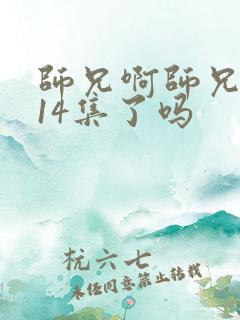 師兄啊師兄
14集了吗
杭六七
未经同意禁止转载